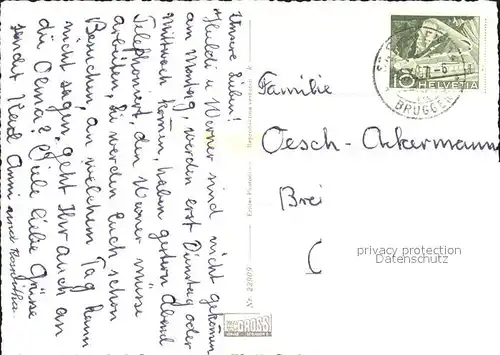 Unsere Lieben!
Heidi u Werner sind nicht gekommen
am Montag, werden erst Dienstag oder
Mittwoch kommen, haben gestern Abend
Telephoniert, den Werner müsse
arbeiten, Sie werden Euch schon
Besuchen, an welchem Tag kann
nicht sagen, geht Ihr auch an
die Oema? Viele liebe Grüsse
sendet Anni und
Familie
Oesch-Ackermann
Brei
privacy protection
Datenschutz
Nr. 22009
GROSS
10
HELVETIA
BRUGGEN